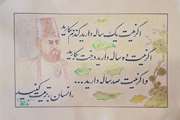 اگر نیت یک ساله دارید گندم بکارید
اگر نیت ده ساله دارید درخت بکارید
و اگر نیت صد ساله دارید ...
انسان تربیت کنید